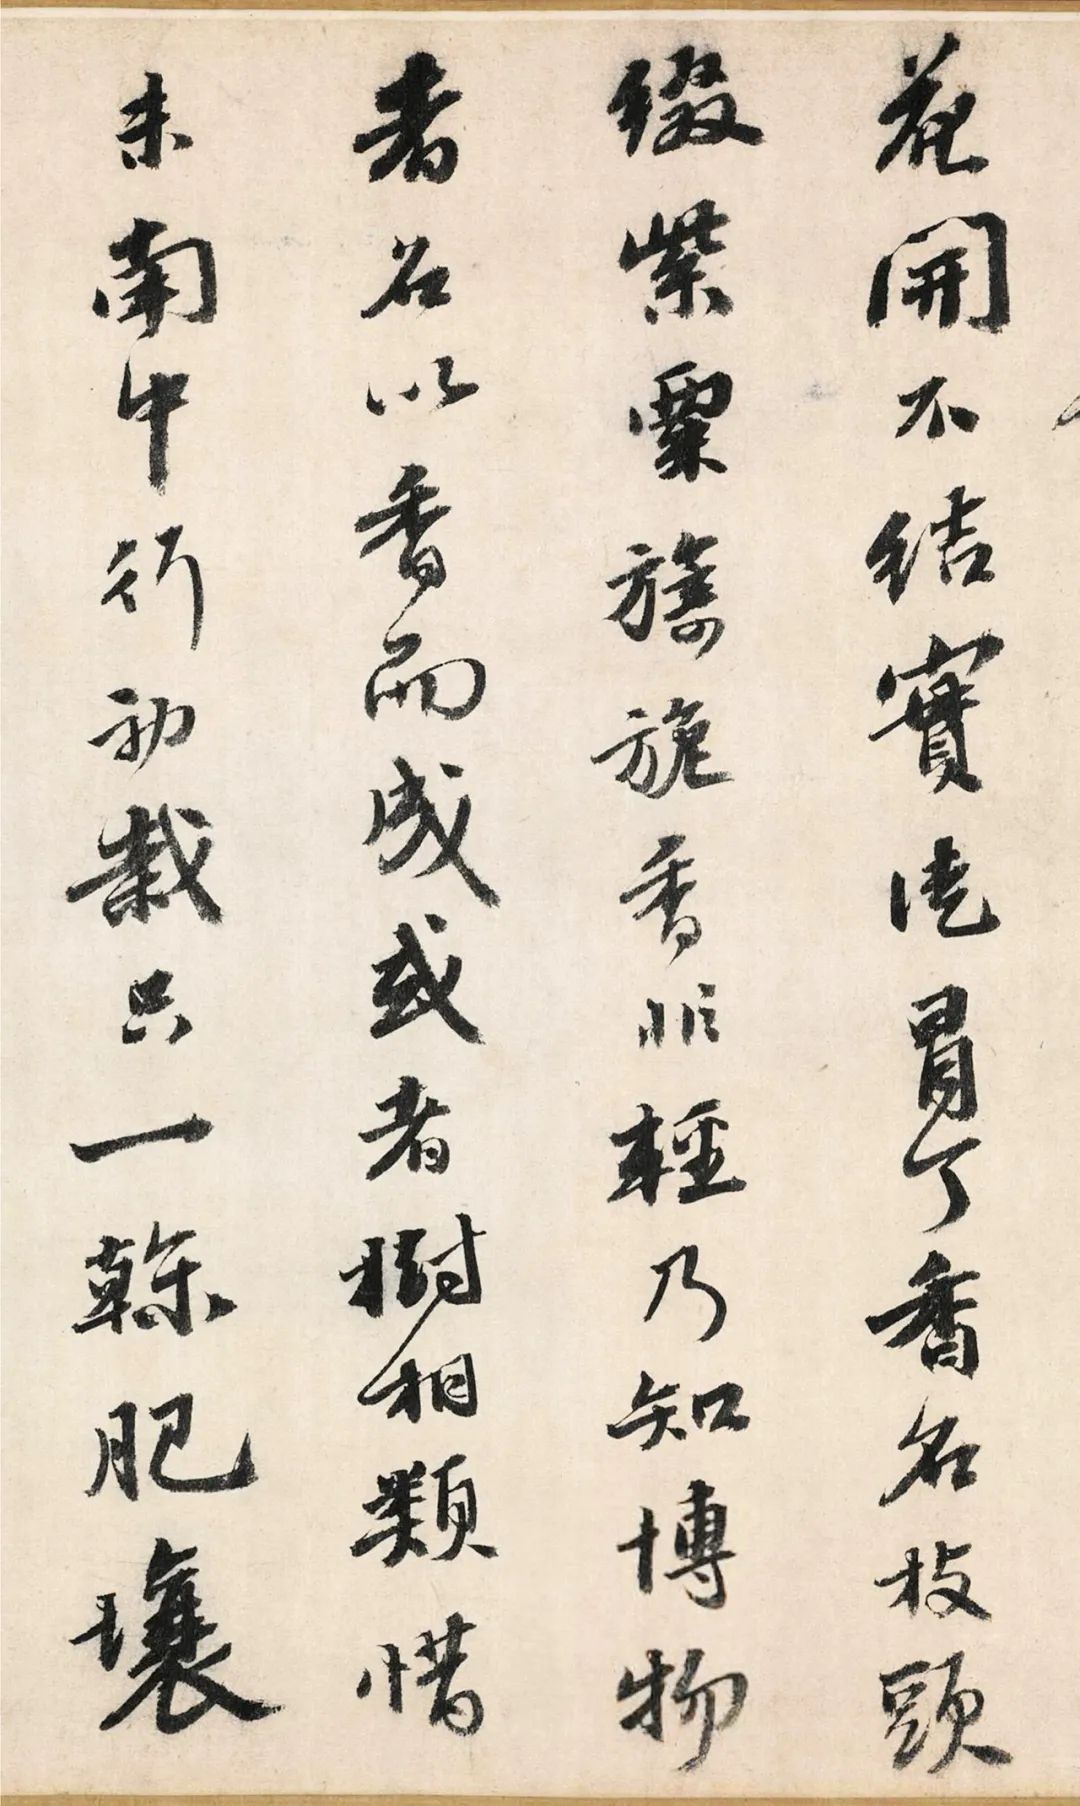 花開不結實徒冒丁香名枝頭
綴紫粟旖旎香非輕乃知博物
者名以香而成或者樹相類惜
未南中行初栽只一榦肥壤